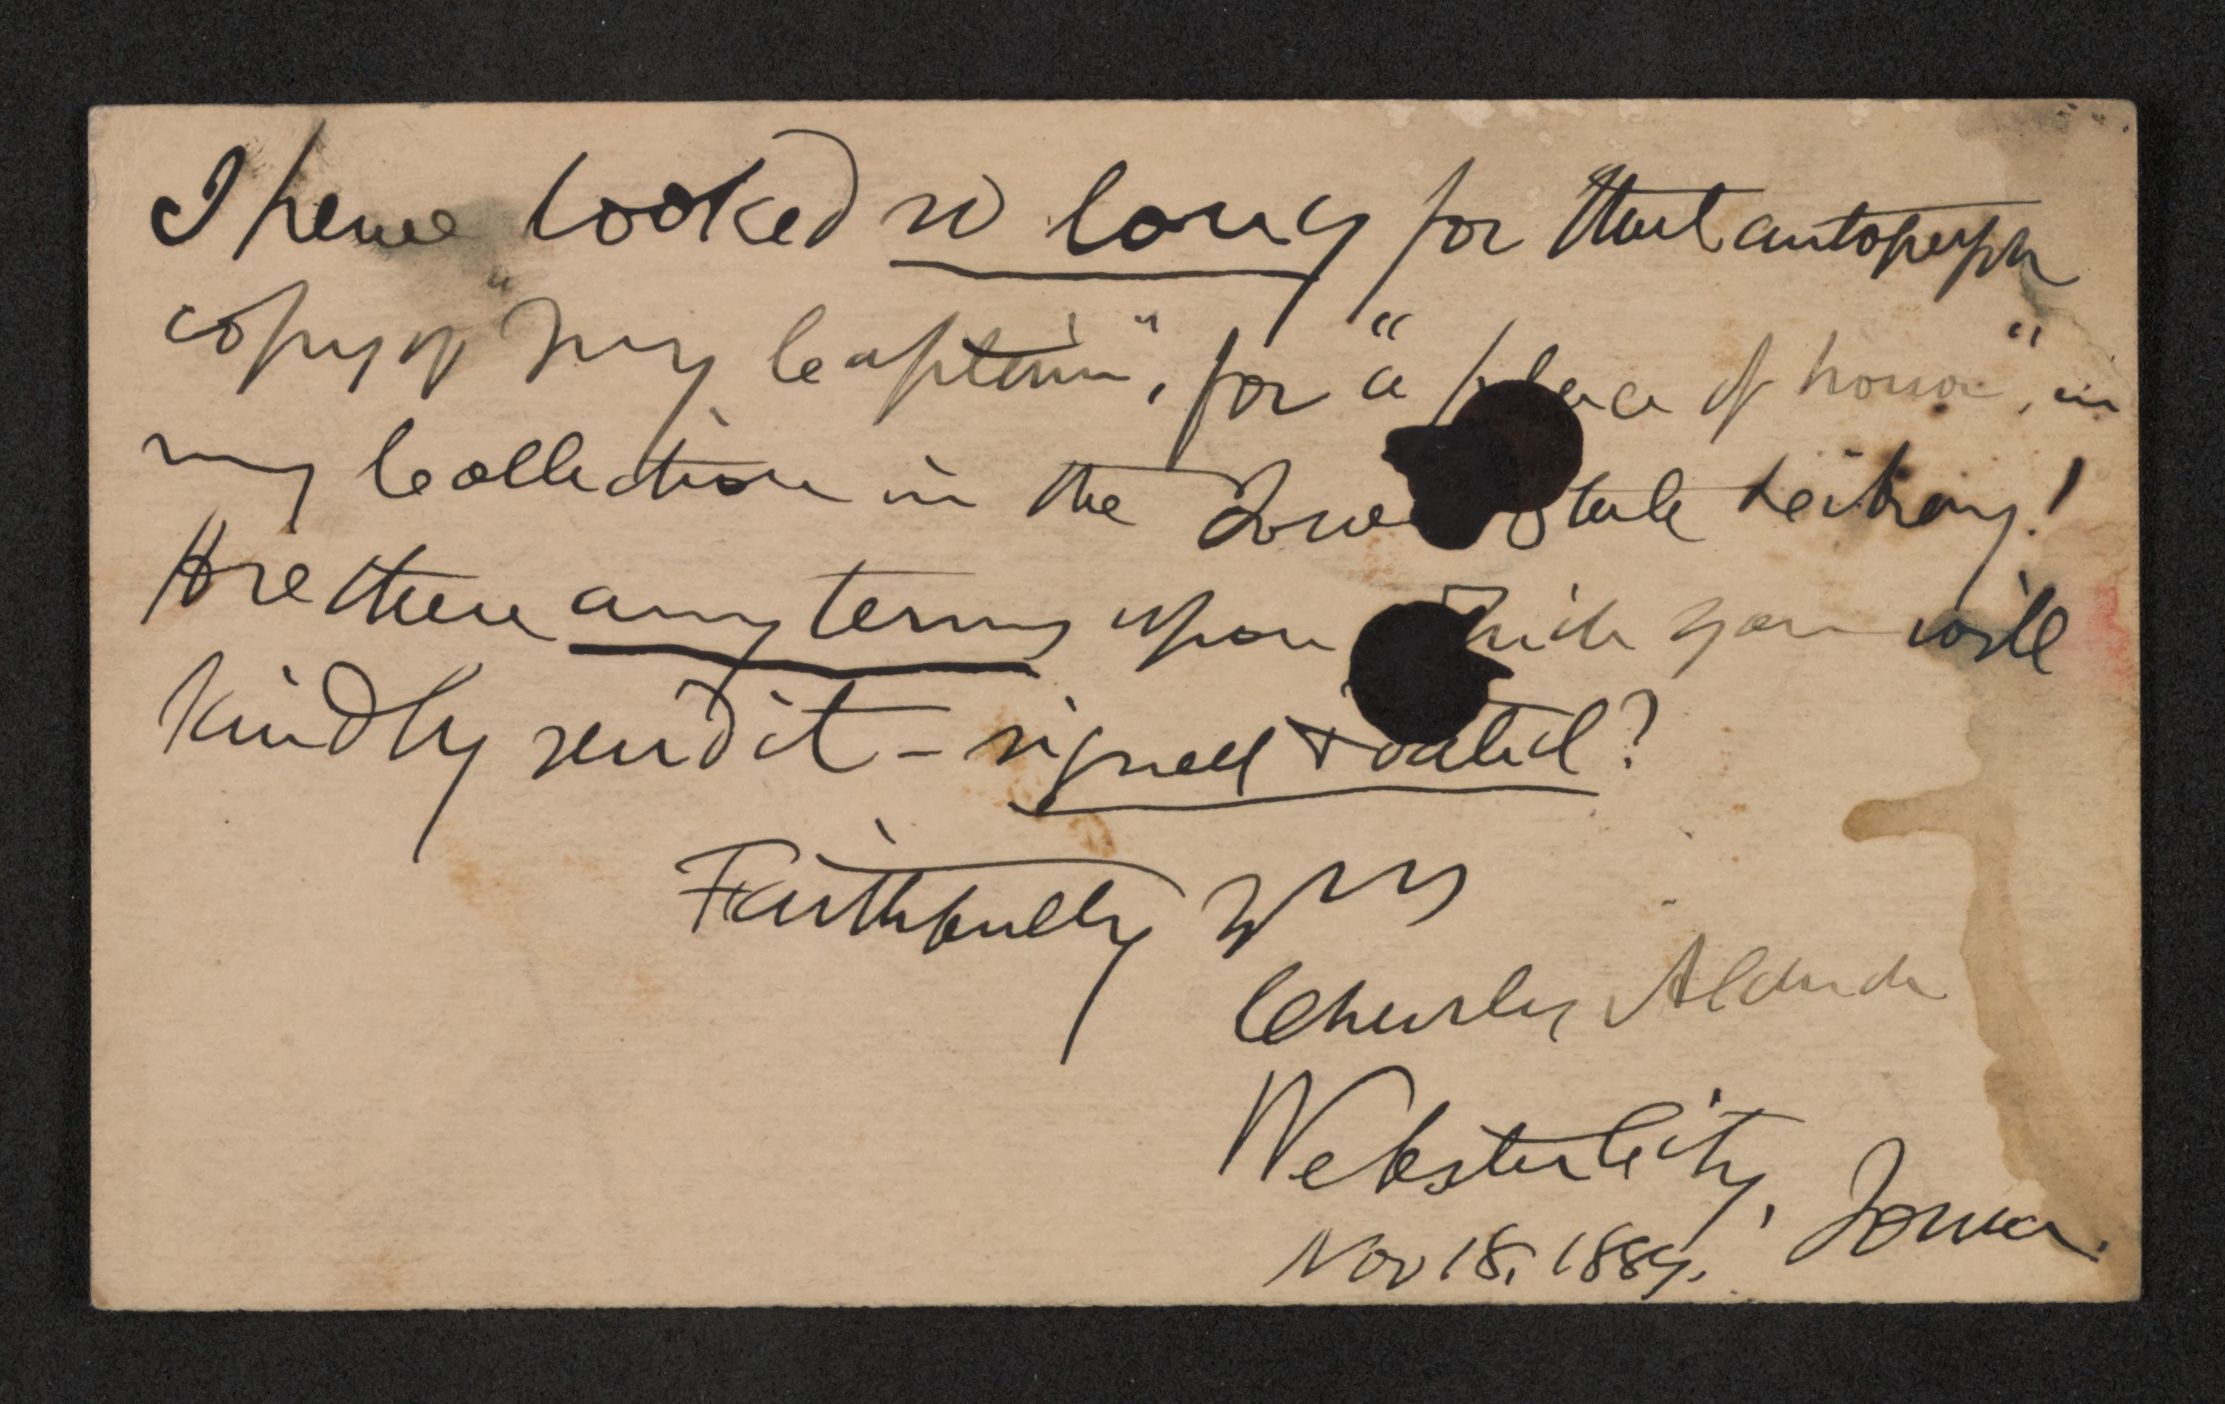 I have looked so long for that autograph
copy of "My Captain", for "a place of honor", in
my Collection in the Iowa State Library!
Are there any terms upon which you will
kindly send it - signed & dated?
Faithfully yrs
Charles Aldrich
Webster City, Iowa.
Nov 18, 1889.